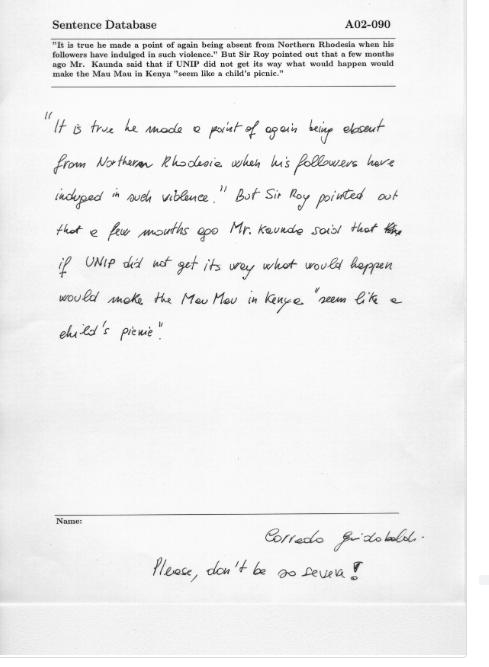 Sentence Database A02-090
"It is true he made a point of again being absent from Northern Rhodesia when his
followers have indulged in such violence." But Sir Roy pointed out that a few months
ago Mr. Kaunda said that if UNIP did not get its way what would happen would
make the Mau Mau in Kenya "seem like a child's picnic."
"It is true he made a point of again being absent
from Northern Rhodesia when his followers have
indulged in such violence." But Sir Roy pointed out
that a few months ago Mr. Kaunda said that
if UNIP did not get its way what would happen
would make the Mau Mau in Kenya "seem like a
child's picnic".
Name:
Corrado Guidobaldi
Please, don't be so severe!